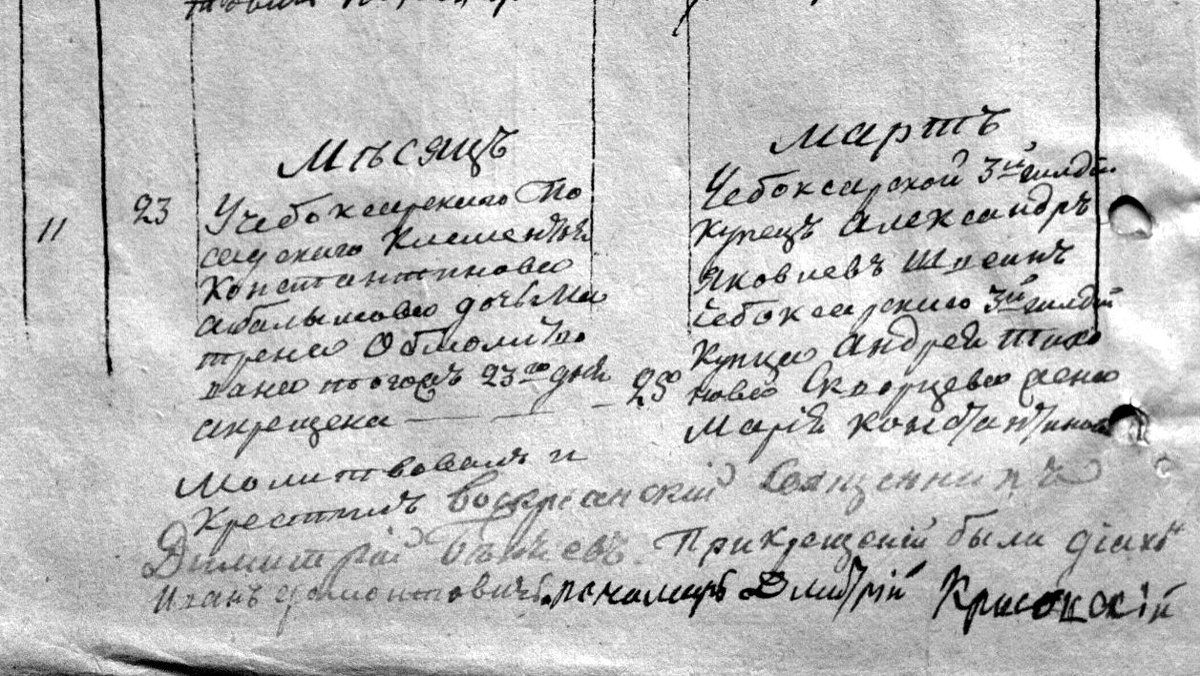 Мѣсяцъ
Мартъ
11
23
Учебоксарскаго По
садскаго Клементья
Константинова
абалымова дочь Ма
трена Обмолитво
вана тогожъ 23го дня
акрещена — — — 25го
Чебоксарской 3й гилдіи
Купецъ Александръ
Яковлевъ
Чебоксарскаго 3й гилдіи
Купца Андрея Тихо
нова Скворцова жена
Марія Константинова
Молитвовалъ и
Крестилъ Воскресенскій Священникъ
Димитрій Прикрещеніи были діаконъ
Иванъ пономарь Дмитрій